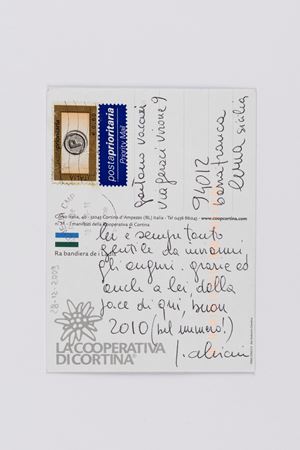 postaprioritaria
Priority Mail
gaetano vacari
via geraci virione 9
94012
barrafranca
enna sicilia
Corso Italia, 40 - 32043 Cortina d'Ampezzo (BL) Italia - Tel 0436 861245 - www.coopcortina.com
Ra bandiera de i
28-12-2009
lei è sempre tanto
gentile da inviarmi
gli auguri. grazie ed
anche a lei, dalla
pace di qui, buon
2010 (bel numero!)
LA COOPERATIVA
DI CORTINA